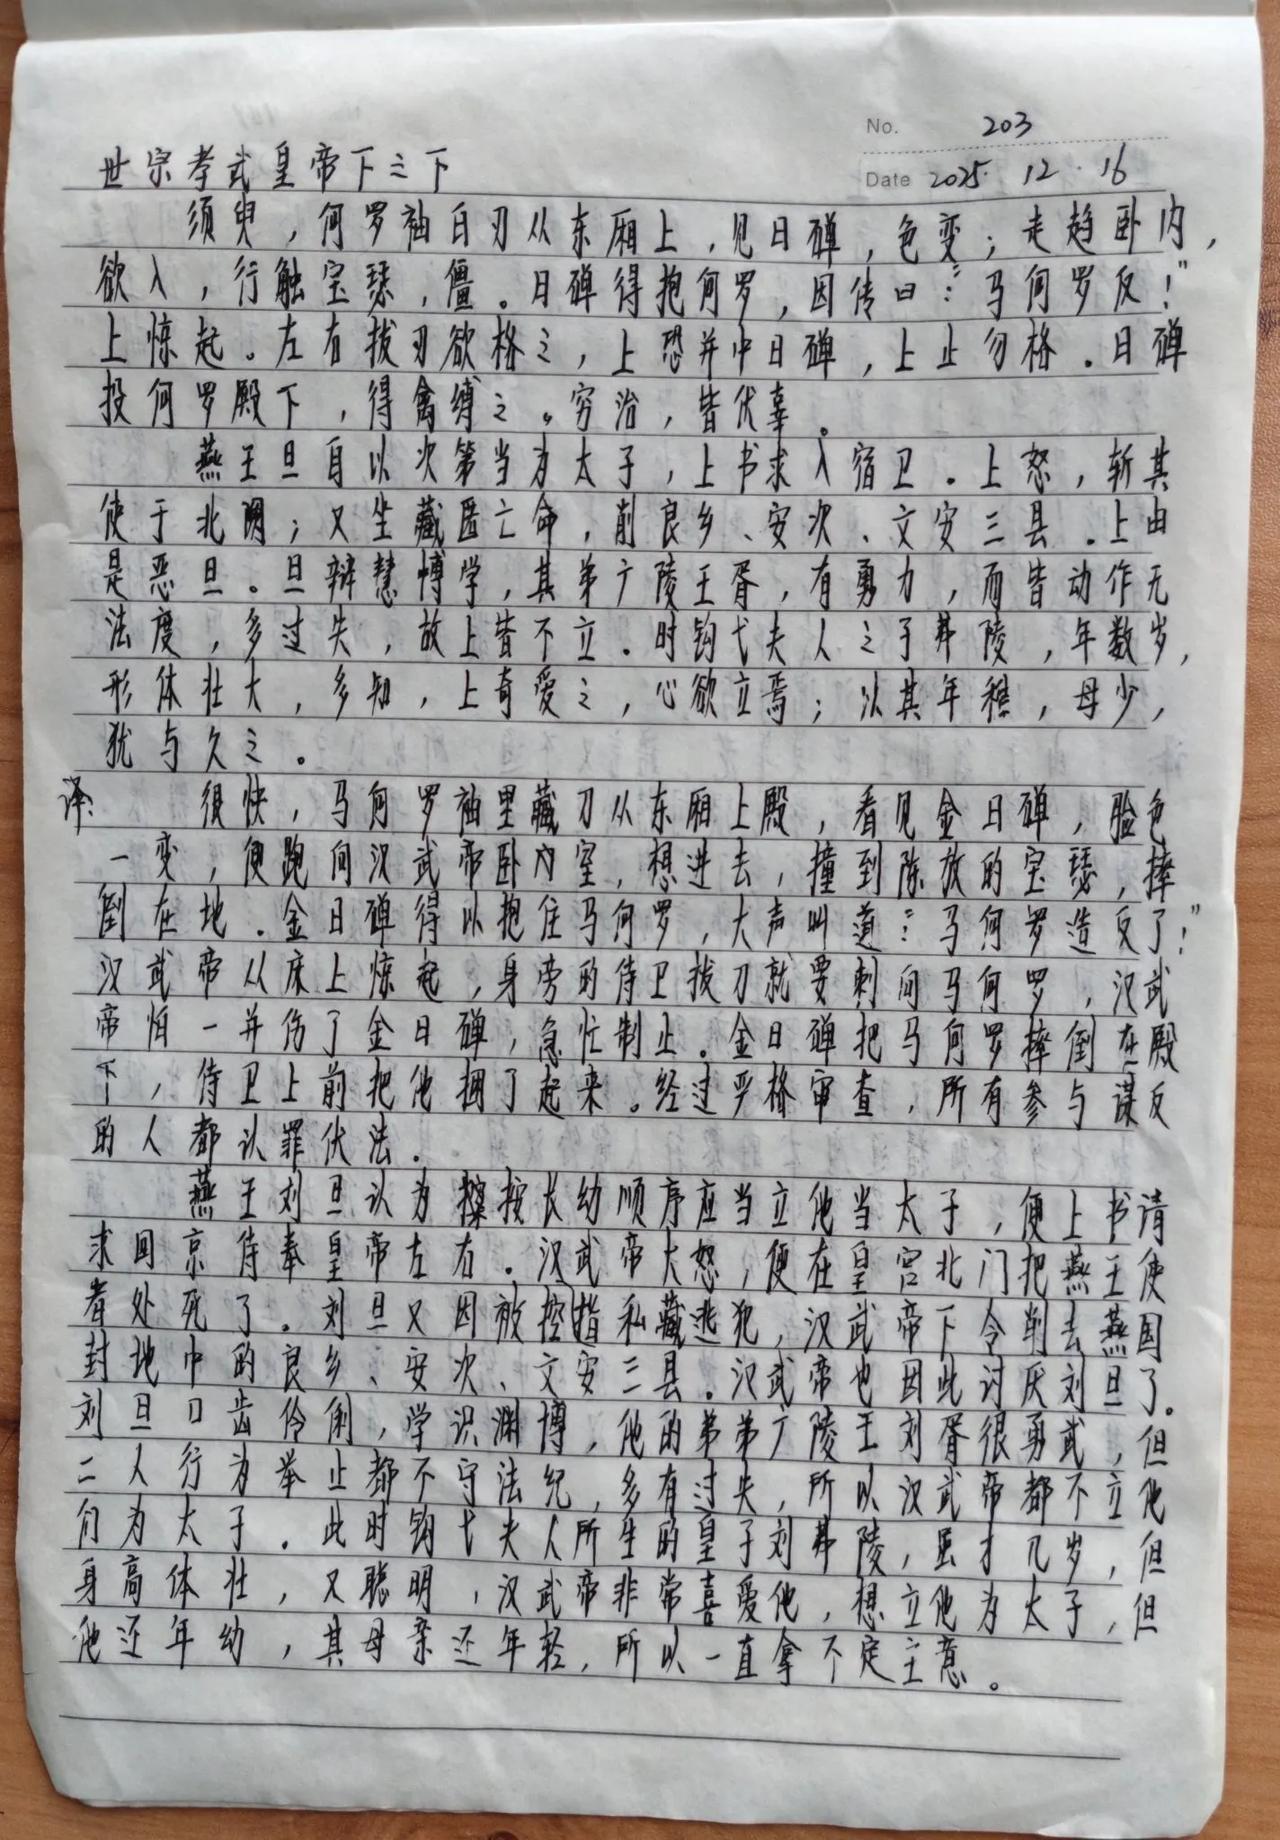 No. 203
世宗孝武皇帝下之下
Date 2025. 12. 16
须臾，何罗袖白刃从东厢上，见日磾，色变；走趋卧内，
欲入，行触宝瑟，僵。日磾得抱何罗，因传曰：“马何罗反！”
上惊起。左右拔刃欲格之，上恐并中日磾，上止勿格。日磾
投何罗殿下，得禽缚之。穷治，皆伏辜。
燕王旦自以次第当为太子，上书求入宿卫。上怒，斩其
使于北阙；又坐藏匿亡命，削良乡、安次、文安三县。上由
是恶旦。旦辩慧博学，其弟广陵王胥，有勇力，而皆动作无
法度，多过失，故上皆不立。时钩弋夫人之子弗陵，年数岁，
形体壮大，多知，上奇爱之，心欲立焉；以其年稚，母少，
犹与久之。
译：很快，马何罗袖里藏刀从东厢上殿，看见金日磾，脸色
一变，便跑向汉武帝卧内室，想进去，撞到陈放的宝瑟，摔
倒在地。金日磾得以抱住马何罗，大声叫道：“马何罗造反了！”
汉武帝从床上惊起，身旁的侍卫拔刀就要刺向马何罗，汉武
帝怕一并伤了金日磾，急忙制止。金日磾把马何罗摔倒在殿
下，侍卫上前把他捆了起来。经过严格审查，所有参与谋反
的人都认罪伏法。
燕王刘旦认为按长幼顺序应当立他当太子，便上书请
求回京侍奉皇帝左右。汉武帝大怒，便在皇宫北门把燕王使
者处死了。刘旦又因被控指私藏逃犯，汉武帝下令削去燕国
封地中的良乡、安次、文安三县。汉武帝也因此讨厌刘旦了。
刘旦口齿伶俐，学识渊博，他的弟弟广陵王刘胥很勇武，但
二人行为举止都不守法纪，多有过失，所以汉武帝都不立他
们为太子。此时钩弋夫人所生的皇子刘弗陵，虽才几岁，但
身高体壮，又聪明，汉武帝非常喜爱他，想立他为太子，但
他还年幼，其母亲还年轻，所以一直拿不定主意。